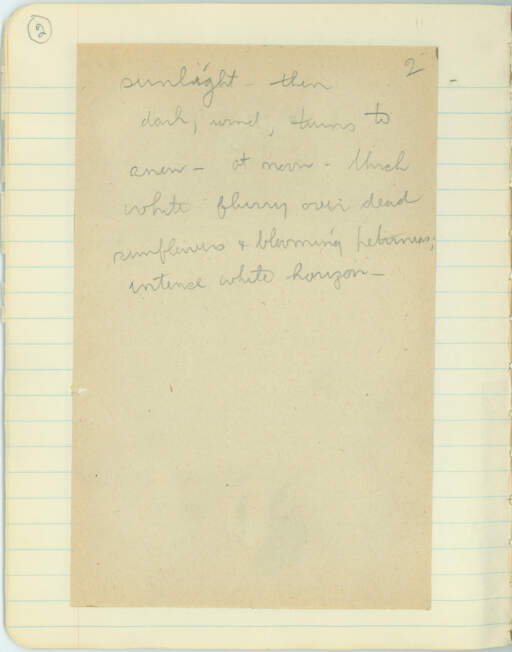 2
sunlight - then
dark, wind, turns to
snow - at noon - thick
white flurry over dead
sunflowers & blooming petunias;
intense white horizon -